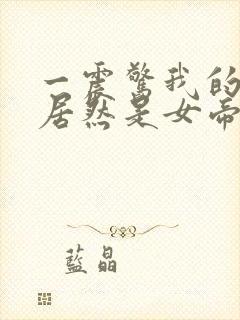 一震驚我的
居然是女帝
藍晶